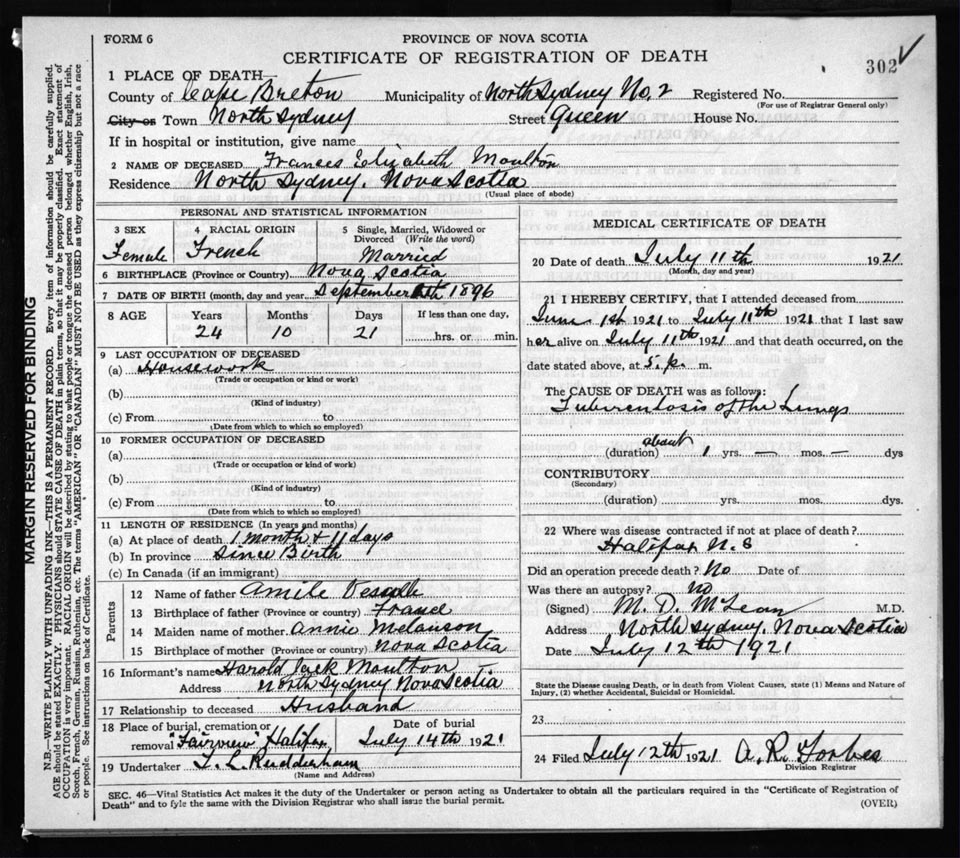 FORM 6
PROVINCE OF NOVA SCOTIA
CERTIFICATE OF REGISTRATION OF DEATH
302
1 PLACE OF DEATH—
County of Cape Breton Municipality of North Sydney No. 2 Registered No.
(For use of Registrar General only)
City or Town North Sydney Street Queen House No.
If in hospital or institution, give name
2 NAME OF DECEASED Frances Elizabeth Moulton
Residence North Sydney. Nova Scotia
(Usual place of abode)
PERSONAL AND STATISTICAL INFORMATION
3 SEX Female
4 RACIAL ORIGIN French
5 Single, Married, Widowed or Divorced (Write the word) Married
6 BIRTHPLACE (Province or Country) Nova Scotia
7 DATE OF BIRTH (month, day and year) September 1896
8 AGE Years Months Days If less than one day,
24 10 21 hrs. or min.
9 LAST OCCUPATION OF DECEASED
(a) Housework
(Trade or occupation or kind or work)
(b)
(Kind of industry)
(c) From to
(Date from which to which so employed)
10 FORMER OCCUPATION OF DECEASED
(a)
(Trade or occupation or kind of work)
(b)
(Kind of industry)
(c) From to
(Date from which to which so employed)
11 LENGTH OF RESIDENCE (In years and months)
(a) At place of death 1 month + 11 days
(b) In province since Birth
(c) In Canada (if an immigrant)
Parents
12 Name of father Amile
13 Birthplace of father (Province or country) France
14 Maiden name of mother Annie Melanson
15 Birthplace of mother (Province or country) Nova Scotia
16 Informant's name Harold Jack Moulton
Address North Sydney Nova Scotia
17 Relationship to deceased Husband
18 Place of burial, cremation or removal "Fairview" Halifax
Date of burial
July 14th 1921
19 Undertaker T. L. Rudderham
(Name and Address)
MEDICAL CERTIFICATE OF DEATH
20 Date of death July 11th 1921
(Month, day and year)
21 I HEREBY CERTIFY, that I attended deceased from
June 1st 1921 to July 11th 1921 that I last saw
her alive on July 11th 1921 and that death occurred, on the
date stated above, at 5. p. m.
The CAUSE OF DEATH was as follows:
Tuberculosis of the Lungs
about
(duration) 1 yrs. — mos. — dys
CONTRIBUTORY
(Secondary)
(duration) yrs. mos. dys.
22 Where was disease contracted if not at place of death?
Halifax N. S
Did an operation precede death? No Date of
Was there an autopsy? No
(Signed) M. D. McLean M.D.
Address North Sydney. Nova Scotia
Date July 12th 1921
State the Disease causing Death, or in death from Violent Causes, state (1) Means and Nature of
Injury, (2) whether Accidental, Suicidal or Homicidal.
23
24 Filed July 12th 1921 A. R. Forbes
Division Registrar
SEC. 46—Vital Statistics Act makes it the duty of the Undertaker or person acting as Undertaker to obtain all the particulars required in the "Certificate of Registration of
Death" and to fyle the same with the Division Registrar who shall issue the burial permit.
(OVER)
MARGIN RESERVED FOR BINDING
N.B.—WRITE PLAINLY WITH UNFADING INK—THIS IS A PERMANENT RECORD. Every item of information should be carefully supplied.
AGE should be stated EXACTLY. PHYSICIANS should STATE CAUSE OF DEATH in plain terms, so that it may be properly classified. Exact statement of
OCCUPATION is very important. RACIAL ORIGIN will be described by stating to what people or tongue the deceased person belonged whether English, Irish,
Scotch, French, German, Russian, Ruthenian, etc. The terms "AMERICAN" OR "CANADIAN" MUST NOT BE USED as they express citizenship but not a race
or people. See instructions on back of Certificate.